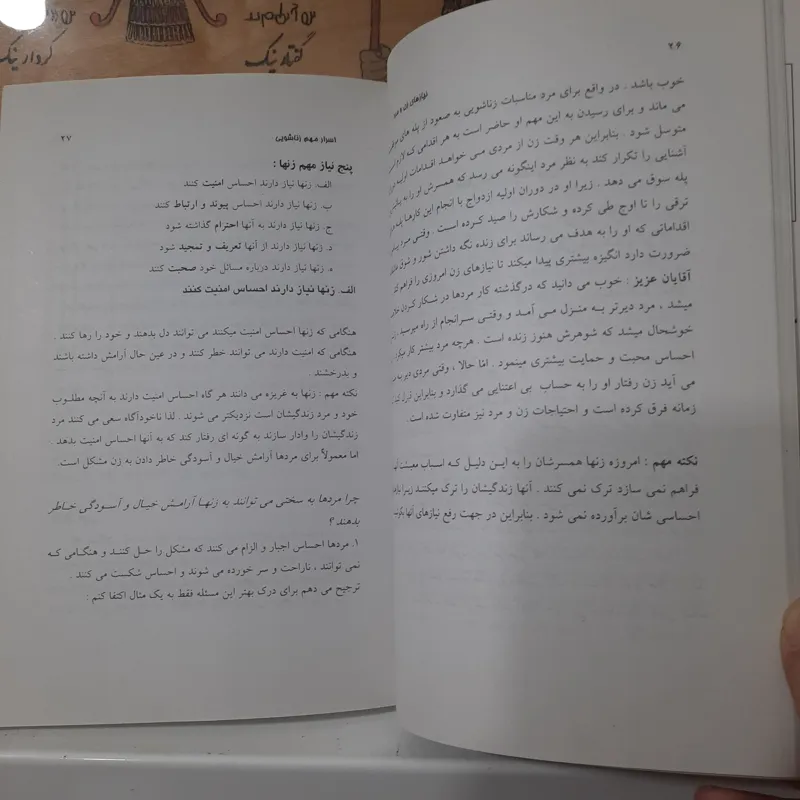 گفتار نیک
کردار نیک
۲۶
خوب باشد . در واقع برای مرد مناسبات زناشویی به صعود از پله های
می ماند و برای رسیدن به این مهم او حاضر است به هر اقدامی که لازم
متوسل شود . بنابراین هر وقت زن از مردی می خواهد اقدامات اولیه
آشنایی را تکرار کند به نظر مرد اینگونه می رسد که همسرش او را به
پله سوق می دهد . زیرا او در دوران اولیه ازدواج با انجام این کارها پله
ترقی را تا اوج طی کرده و شکارش را صید کرده است . وقتی مرد
اقداماتی که او را به هدف می رساند برای زنده نگه داشتن شور و شوق
ضرورت دارد انگیزه بیشتری پیدا میکند تا نیازهای زن امروزی را فراهم
آقایان عزیز : خوب می دانید که درگذشته کار مردها در شکار کردن
میشد ، مرد دیرتر به منزل می آمد و وقتی سرانجام از راه میرسید
خوشحال میشد که شوهرش هنوز زنده است . هرچه مرد بیشتر کار
احساس محبت و حمایت بیشتری مینمود . امّا حالا ، وقتی مردی دیر
می آید زن رفتار او را به حساب بی اعتنایی می گذارد و بنابراین
زمانه فرق کرده است و احتیاجات زن و مرد نیز متفاوت شده است .
نکته مهم : امروزه زنها همسرشان را به این دلیل که اسباب معیشت
فراهم نمی سازد ترک نمی کنند . آنها زندگیشان را ترک میکنند زیرا
احساسی شان برآورده نمی شود . بنابراین در جهت رفع نیازهای آنها
اسرار مهم زناشویی ۲۷
پنج نیاز مهم زنها :
الف. زنها نیاز دارند احساس امنیت کنند
ب. زنها نیاز دارند احساس پیوند و ارتباط کنند
ج. زنها نیاز دارند به آنها احترام گذاشته شود
د. زنها نیاز دارند از آنها تعریف و تمجید شود
ه. زنها نیاز دارند درباره مسائل خود صحبت کنند
الف. زنها نیاز دارند احساس امنیت کنند
هنگامی که زنها احساس امنیت میکنند می توانند دل بدهند و خود را رها کنند .
هنگامی که امنیت دارند می توانند خطر کنند و در عین حال آرامش داشته باشند
و بدرخشند .
نکته مهم : زنها به غریزه می دانند هر گاه احساس امنیت دارند به آنچه مطلوب
خود و مرد زندگیشان است نزدیکتر می شوند . لذا ناخودآگاه سعی می کنند مرد
زندگیشان را وادار سازند به گونه ای رفتار کند که به آنها احساس امنیت بدهد .
اما معمولاً برای مردها آرامش خیال و آسودگی خاطر دادن به زن مشکل است.
چرا مردها به سختی می توانند به زنها آرامش خیال و آسودگی خاطر
بدهند ؟
۱. مردها احساس اجبار و الزام می کنند که مشکل را حل کنند و هنگامی که
نمی توانند ، ناراحت و سر خورده می شوند و احساس شکست می کنند .
ترجیح می دهم برای درک بهتر این مسئله فقط به یک مثال اکتفا کنم :